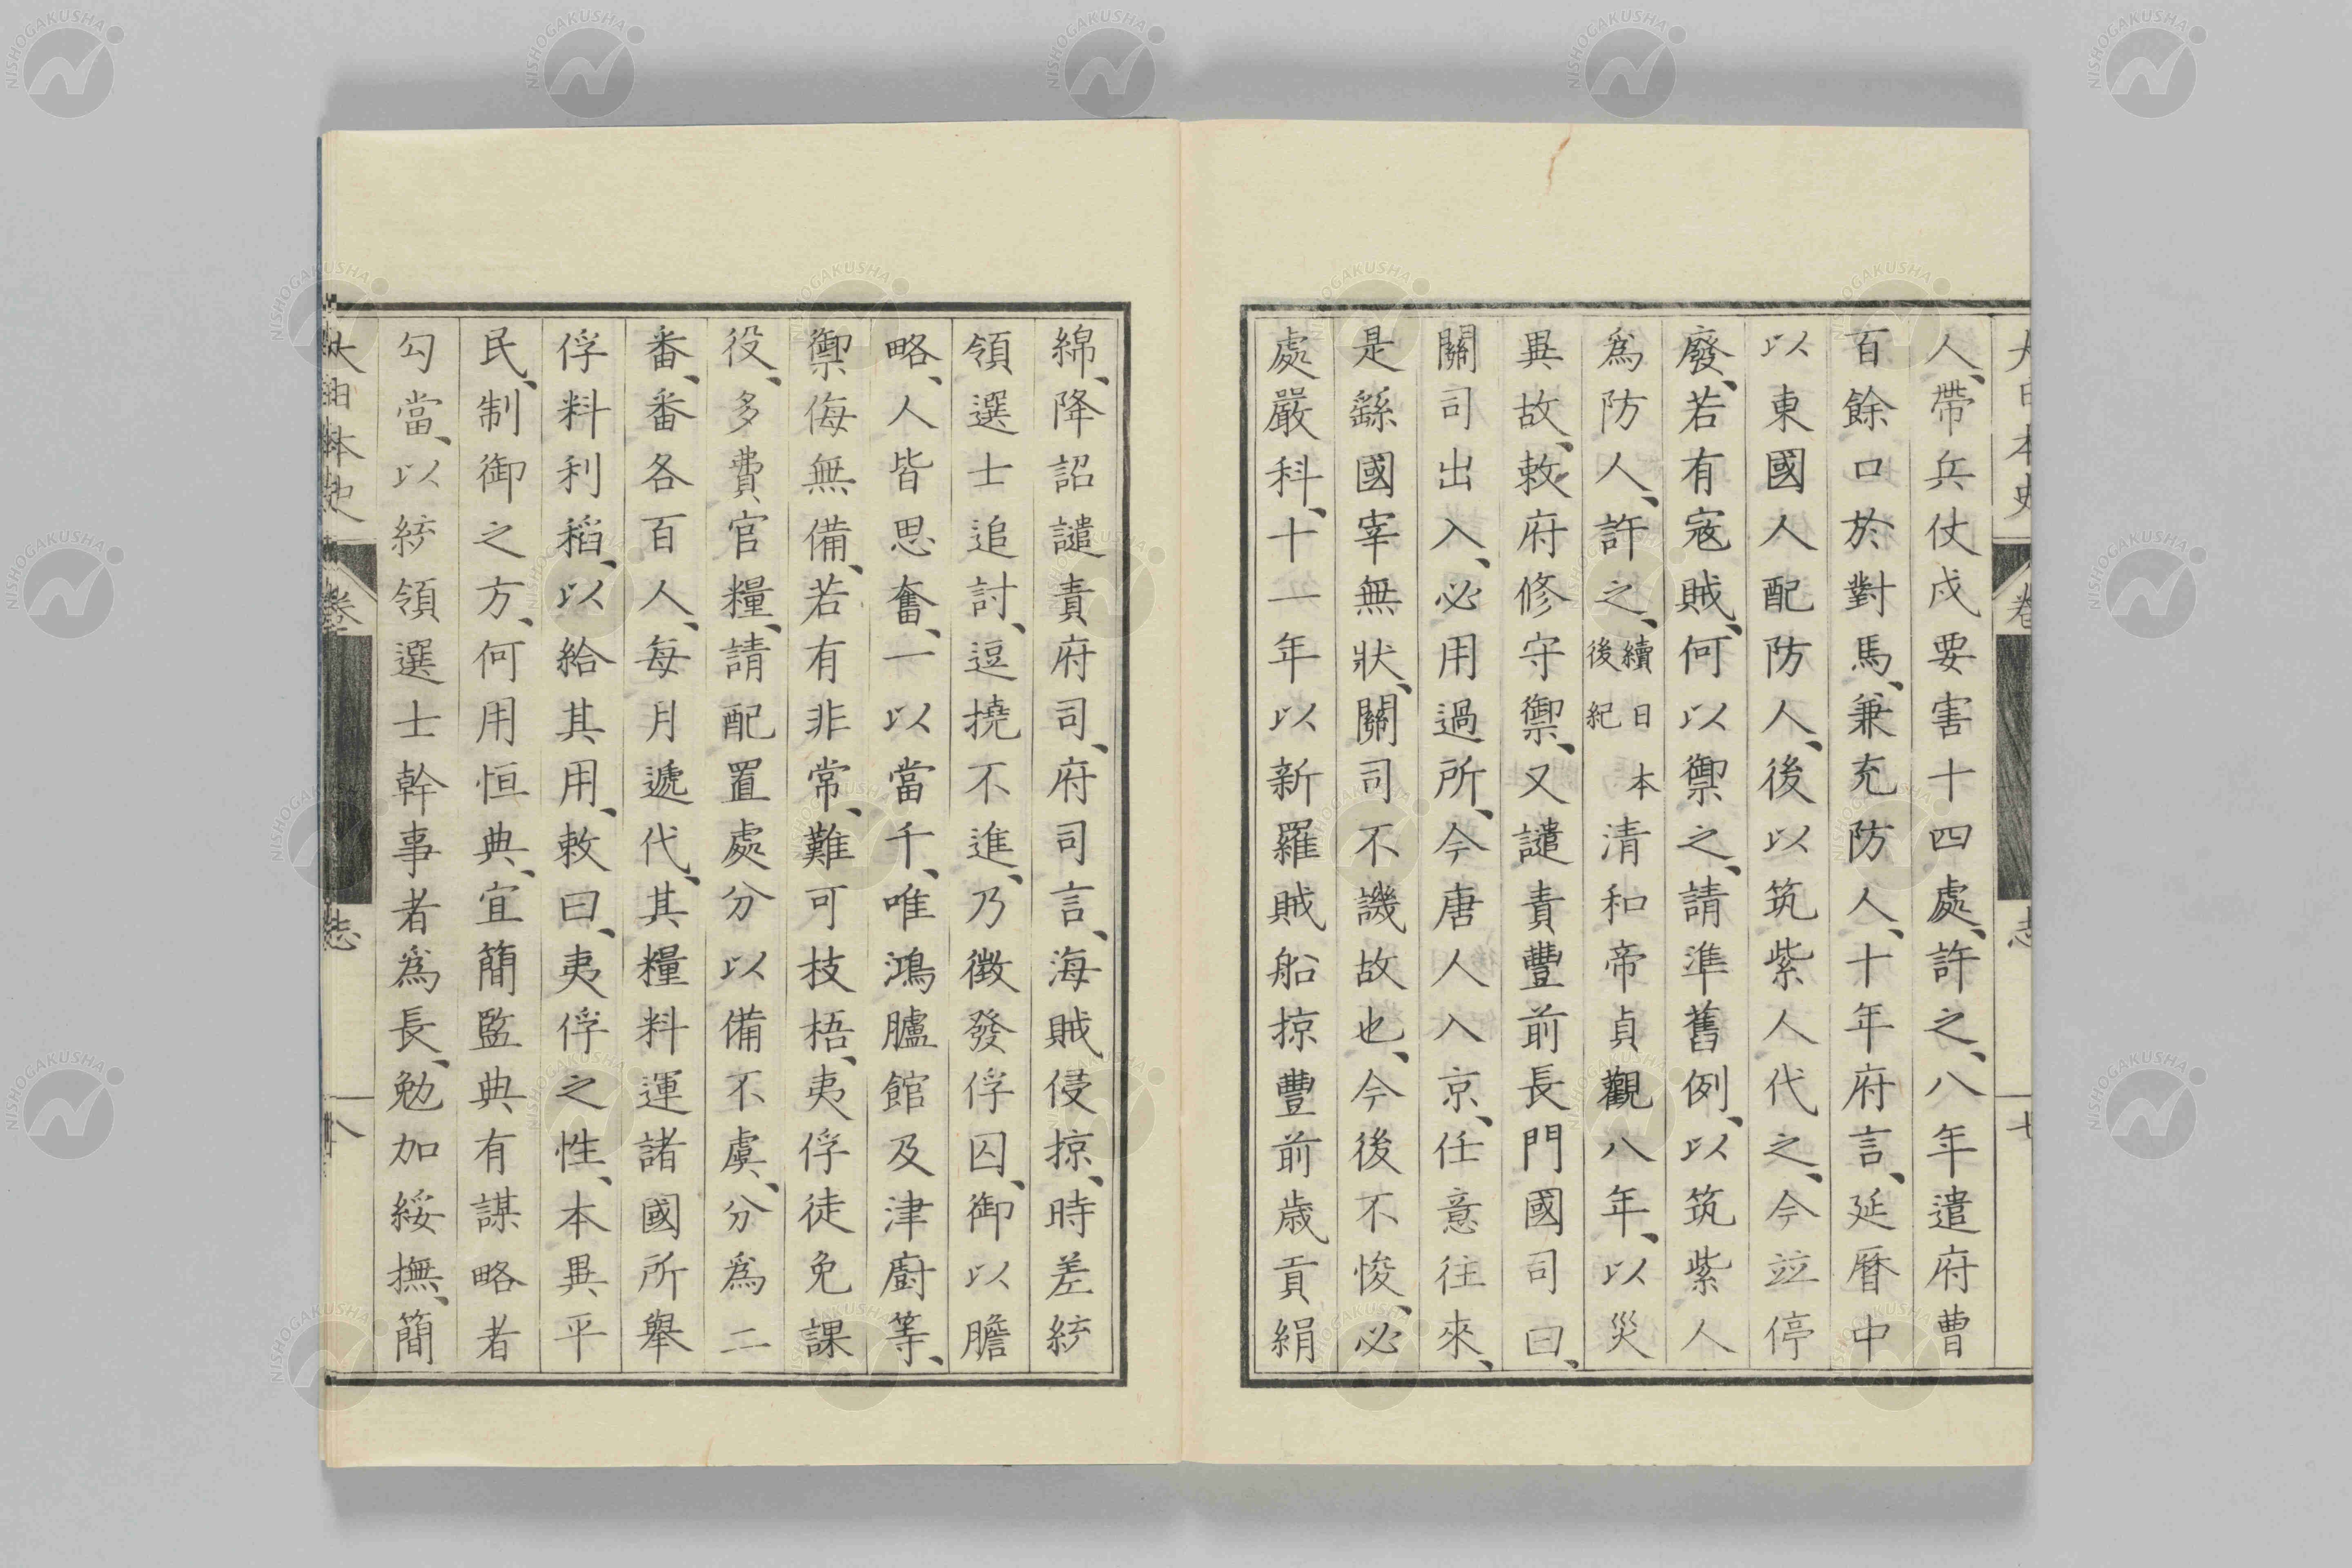 大日本史 卷 志 七
人、帶兵仗戍要害十四處、許之、八年遣府曹
百餘口於對馬、兼充防人、十年府言、延曆中
以東國人配防人、後以筑紫人代之、今竝停
廢、若有寇賊、何以禦之、請準舊例、以筑紫人
爲防人、許之、續日本後紀 清和帝貞觀八年、以災
異故、敕府修守禦、又譴責豐前長門國司曰、
關司出入、必用過所、今唐人入京、任意往來、
是繇國宰無狀、關司不譏故也、今後不悛、必
處嚴科、十一年以新羅賊船掠豐前歲貢絹
綿、降詔譴責府司、府司言、海賊侵掠、時差統
領選士追討、逗撓不進、乃徵發俘囚、御以膽
略、人皆思奮、一以當千、唯鴻臚館及津廚等、
禦侮無備、若有非常、難可枝梧、夷俘徒免課
役、多費官糧、請配置處分以備不虞、分爲二
番、番各百人、每月遞代、其糧料運諸國所舉
俘料利稻、以給其用、敕曰、夷俘之性、本異平
民、制御之方、何用恒典、宜簡監典有謀略者
勾當、以統領選士幹事者爲長、勉加綏撫、簡
大日本史 卷 志 八
NISHOGAKUSHA